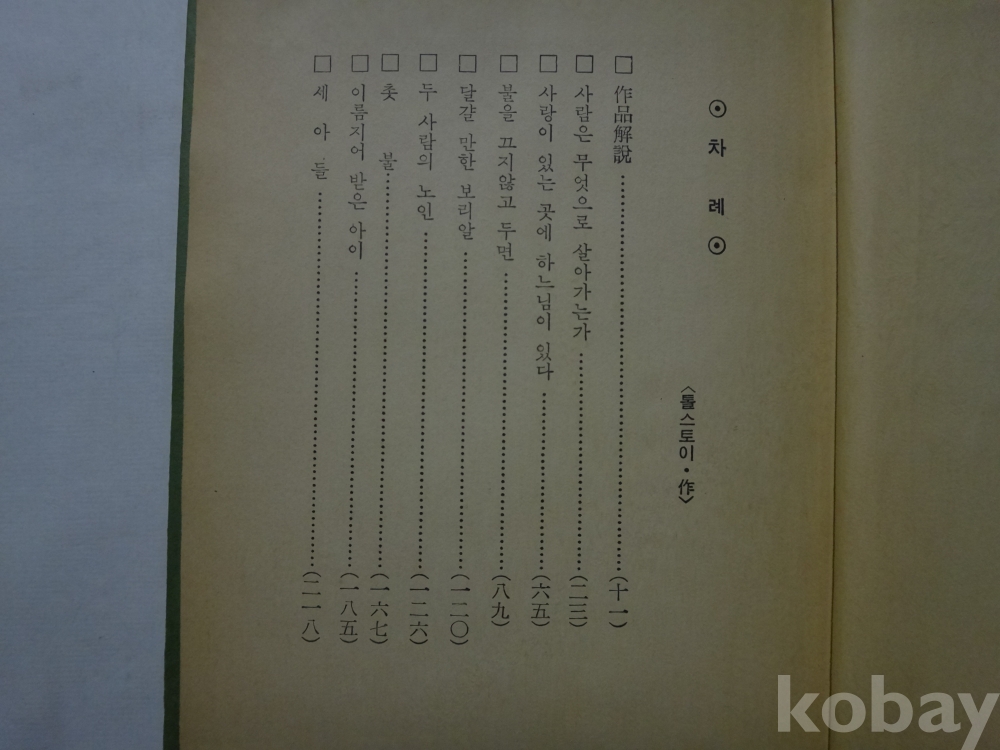 ⊙ 차 례 ⊙
〈톨스토이·作〉
□ 作品解說 ……………………………(十一)
□ 사람은 무엇으로 살아가는가 ……………………………(二三)
□ 사랑이 있는 곳에 하느님이 있다 ……………………………(六五)
□ 불을 끄지않고 두면 ……………………………(八九)
□ 달걀 만한 보리알 ……………………………(一二〇)
□ 두 사람의 노인 ……………………………(一二六)
□ 촛 불 ……………………………(一六七)
□ 이름지어 받은 아이 ……………………………(一八五)
□ 세 아 들 ……………………………(二一八)
kobay